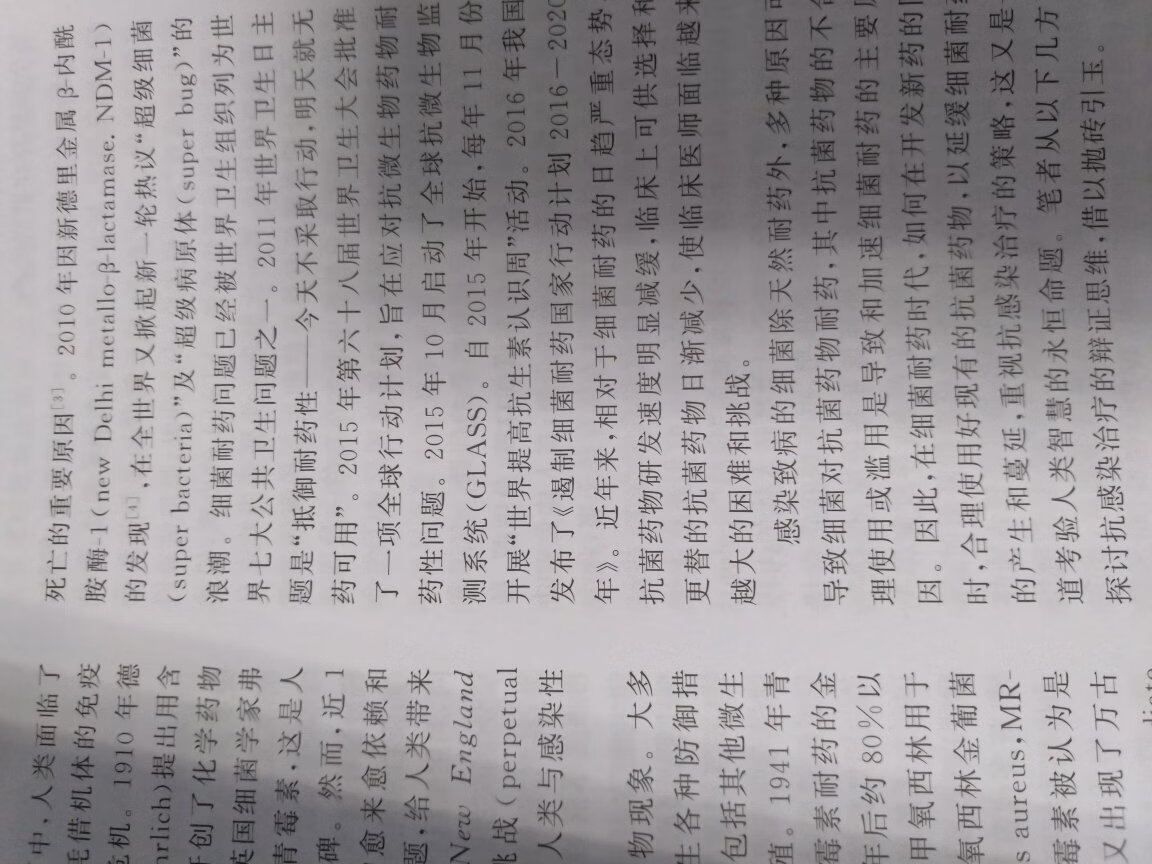 中,人类面临了
借机体的免疫
危机。1910 年德
hrlich)提出用含
开创了化学药物
英国细菌学家弗
青霉素,这是人
碑。然而,近 1
愈来愈依赖和
题,给人类带来
New England
挑战(perpetual
人类与感染性
物现象。大多
生各种防御措
包括其他微生
殖。1941 年青
霉素耐药的金
年后约 80%以
甲氧西林用于
氧西林金葡菌
s aureus,MR-
霉素被认为是
又出现了万古
死亡的重要原因[3]。2010 年因新德里金属 β-内酰
胺酶-1(new Delhi metallo-β-lactamase. NDM-1)
的发现[4],在全世界又掀起新一轮热议“超级细菌
(super bacteria)”及“超级病原体(super bug)”的
浪潮。细菌耐药问题已经被世界卫生组织列为世
界七大公共卫生问题之一。2011 年世界卫生日主
题是“抵御耐药性——今天不采取行动,明天就无
药可用”。2015 年第六十八届世界卫生大会批准
了一项全球行动计划,旨在应对抗微生物药物耐
药性问题。2015 年 10 月启动了全球抗微生物监
测系统(GLASS)。自 2015 年开始,每年 11 月份
开展“世界提高抗生素认识周”活动。2016 年我国
发布了《遏制细菌耐药国家行动计划 2016－2020
年》。近年来,相对于细菌耐药的日趋严重态势
抗菌药物研发速度明显减缓,临床上可供选择和
更替的抗菌药物日渐减少,使临床医师面临越来
越大的困难和挑战。
感染致病的细菌除天然耐药外,多种原因可
导致细菌对抗菌药物耐药,其中抗菌药物的不合
理使用或滥用是导致和加速细菌耐药的主要原
因。因此,在细菌耐药时代,如何在开发新药的同
时,合理使用好现有的抗菌药物,以延缓细菌耐药
的产生和蔓延,重视抗感染治疗的策略,这又是一
道考验人类智慧的永恒命题。笔者从以下几方
探讨抗感染治疗的辩证思维,借以抛砖引玉。